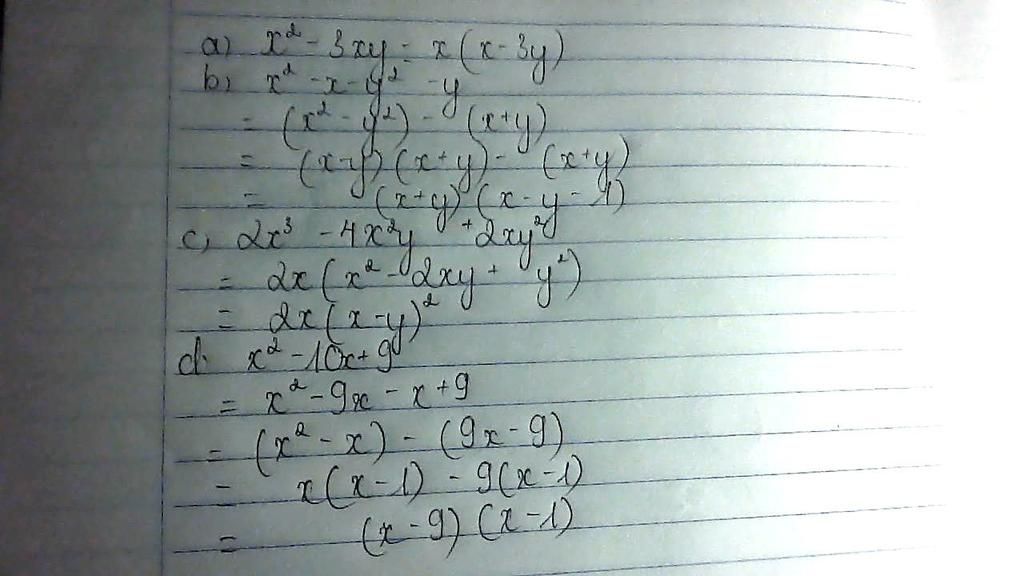 a) x² - 3xy = x(x - 3y)
b) x² - x - y² - y
= (x² - y²) - (x+y)
= (x-y)(x+y) - (x+y)
= (x+y)(x-y-1)
c) 2x³ - 4x²y + 2xy²
= 2x(x² - 2xy + y²)
= 2x(x-y)²
d. x² - 10x + 9
= x² - 9x - x + 9
= (x² - x) - (9x - 9)
= x(x-1) - 9(x-1)
= (x-9)(x-1)